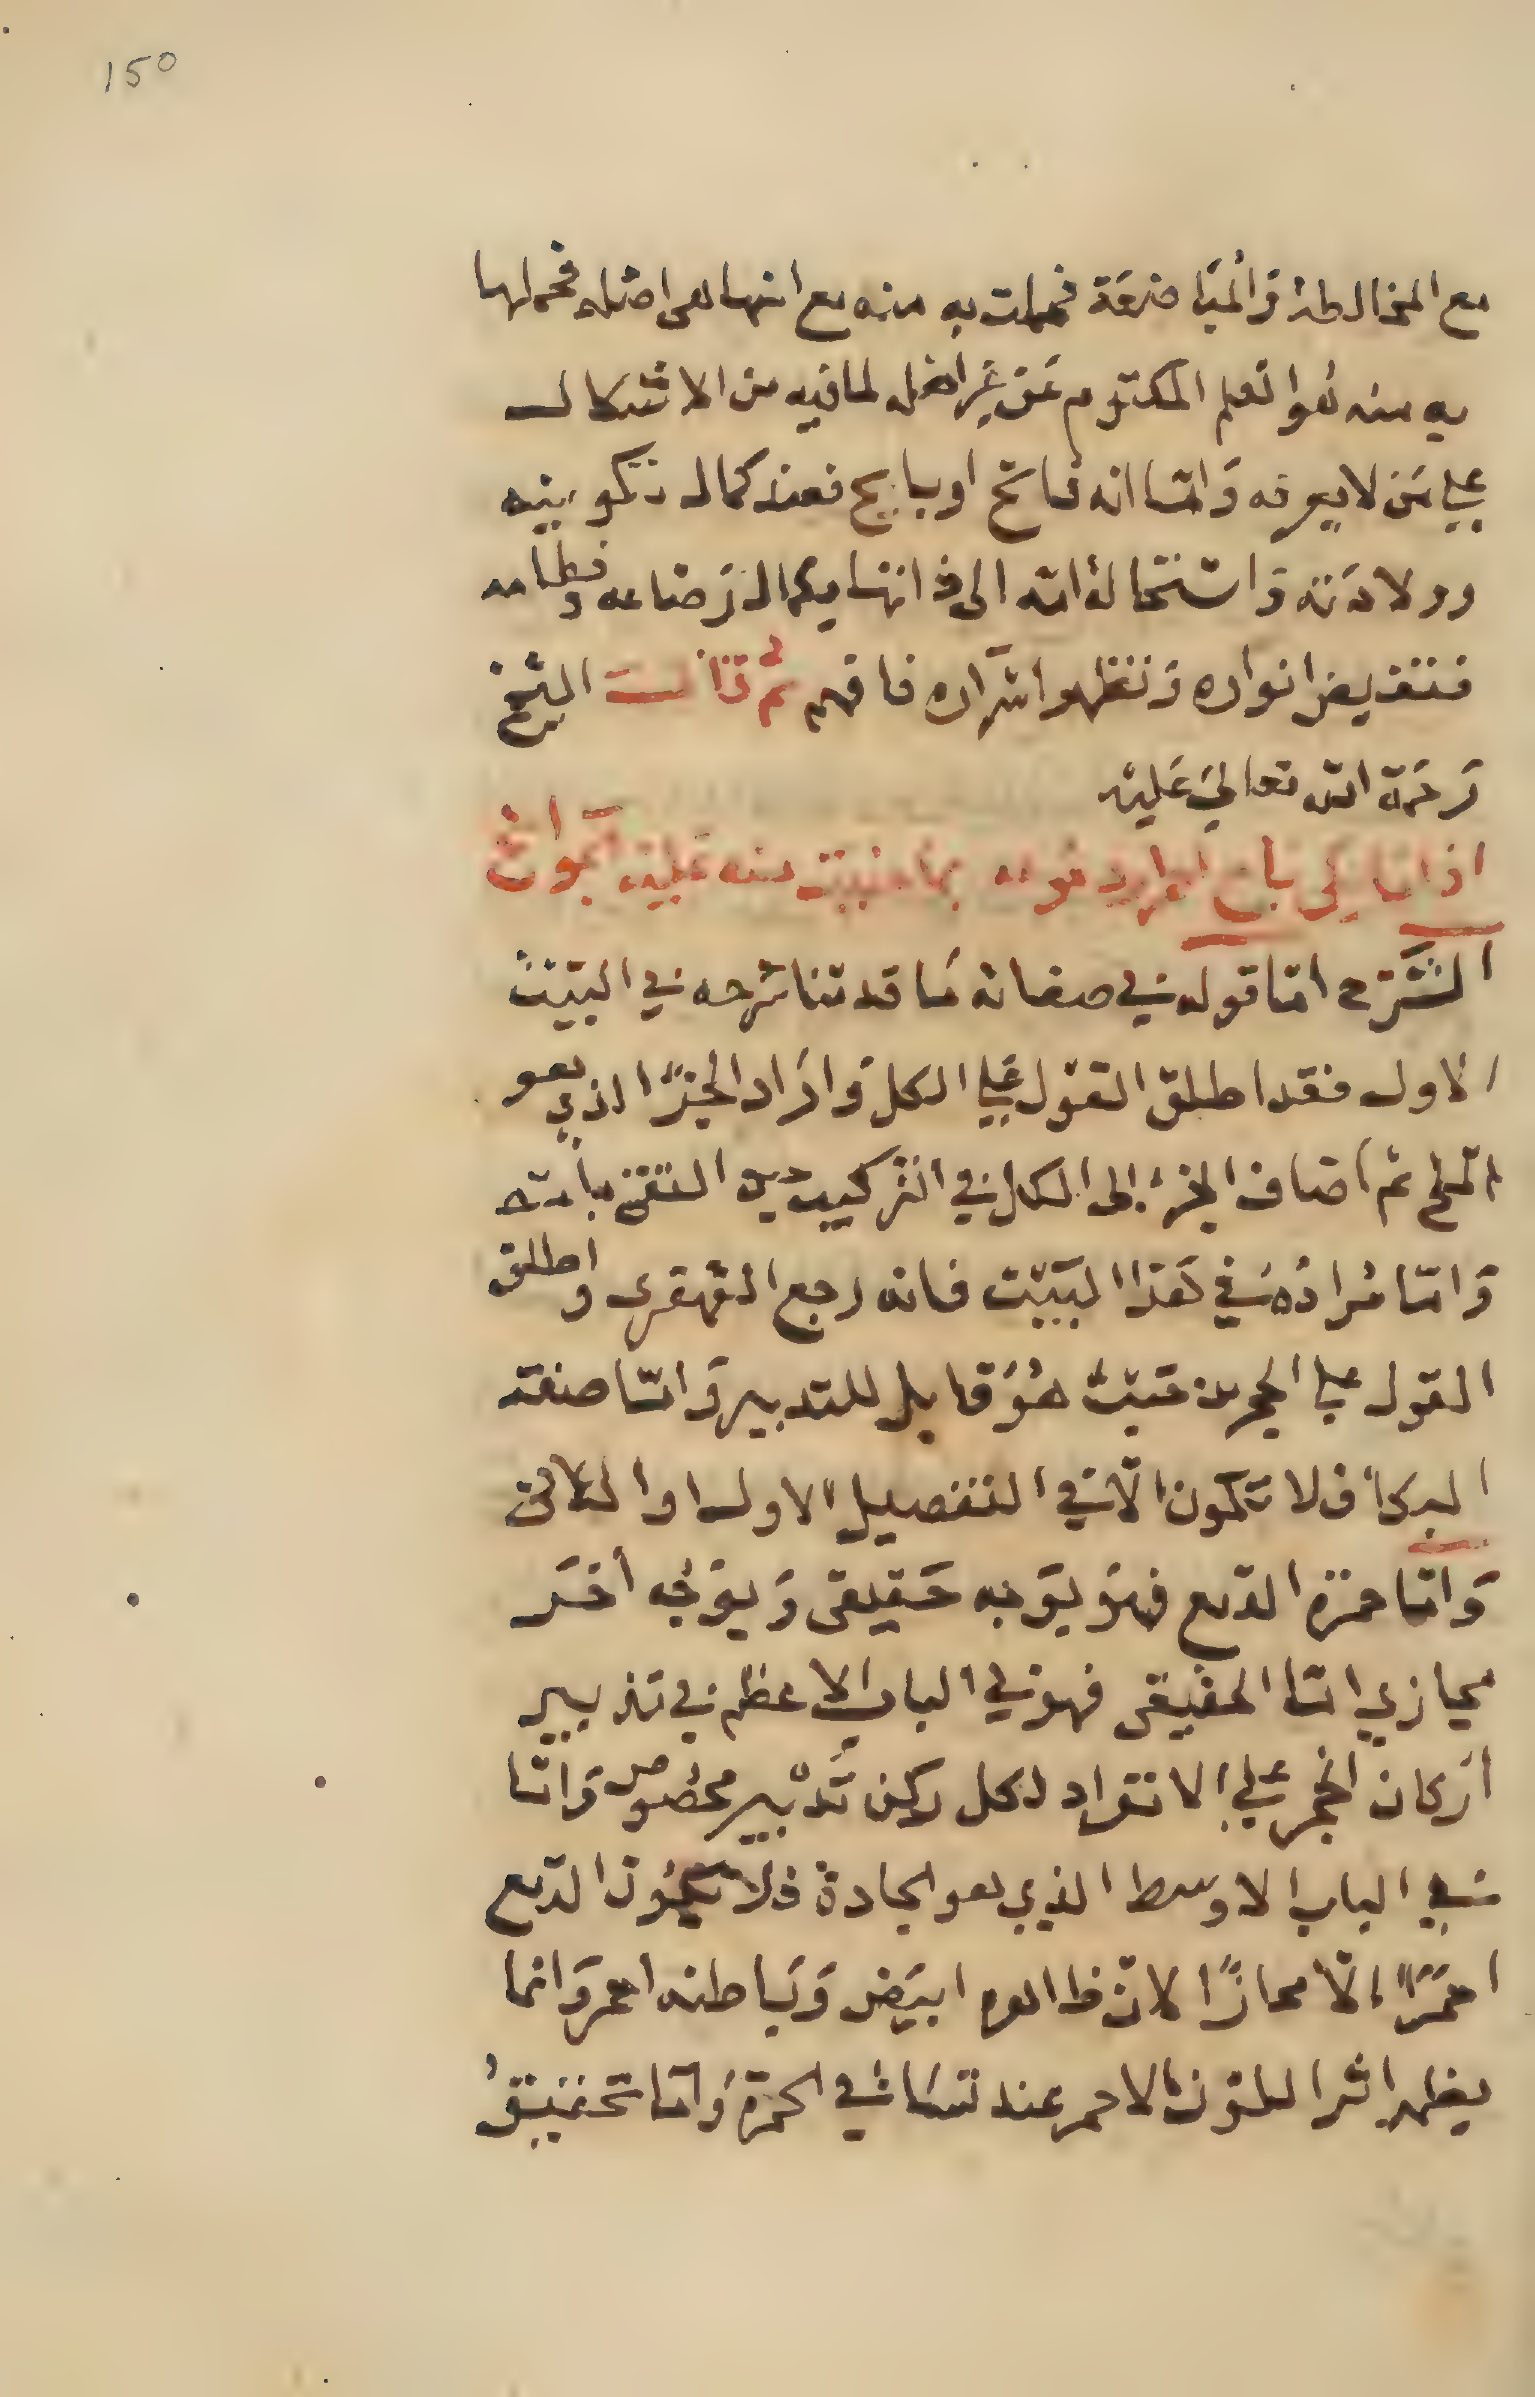 150
مع المخالطة والمباضعة فحملت به منه مع انها هى اصله فحملها
به منه هو العلم المكتوم عن غير اهله لما فيه من الاشكال
علي من لا يعرفه واما انه فاتح او بايح فعند كمال تكوينه
وولادته واستحالة امه الى انتها كمال رضاعه وفطامه
فتفيض انواره وتظهر اسراره فافهم ثم قال الشيخ
رحمة الله تعالي عليه
اذا
الشرح اما قوله في صفاته ما قدمنا شرحه في البيت
الاول فقد اطلق القول علي الكل واراد الجزء الذي هو
الملح ثم اضاف الجزء الى الكل في التركيب
واما مراده في هذا البيت فانه رجع القهقرى واطلق
القول علي الحجر من حيث هو قابل للتدبير واما صنعة
البكا فلا تكون الا في التفصيل الاول او الثاني
واما حمرة الدمع فهو بوجه حقيقى وبوجه أخر
مجازي اما الحقيقى فهو في الباب الاعظم في تدبير
أركان الحجر علي الانفراد لكل ركن تدبير مخصوص واما
في الباب الاوسط الذي هو الجادة فلا يكون الدمع
احمرًا الّا مجازًا لانّ ظاهره ابيض وباطنه احمر وانما
يظهر اثر اللون الاحمر عند تناهي الحمرة واما تحقيق